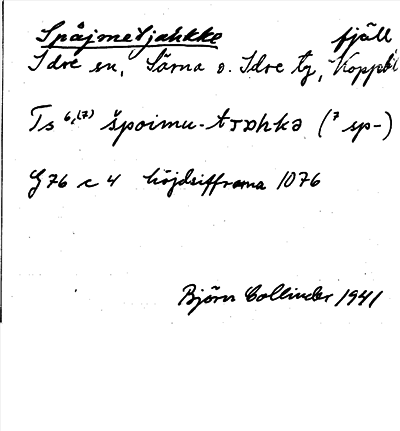 Spåjmetjahkke fjäll
Idre sn, Särna o. Idre tg, Koppbl
Ts 6,(7) špoimu-tɔɒhkə (7 sp-)
G 76 c 4 höjdsiffrorna 1076
Björn Collinder 1941